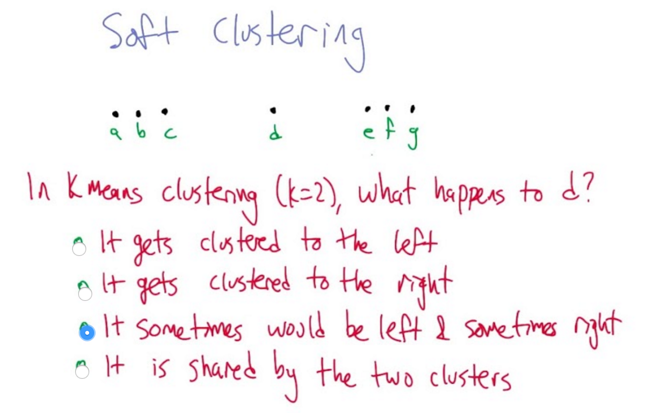 Soft Clustering
a b c d e f g
In K Means clustering (k=2), what happens to d?
It gets clustered to the left
It gets clustered to the right
It sometimes would be left & sometimes right
It is shared by the two clusters